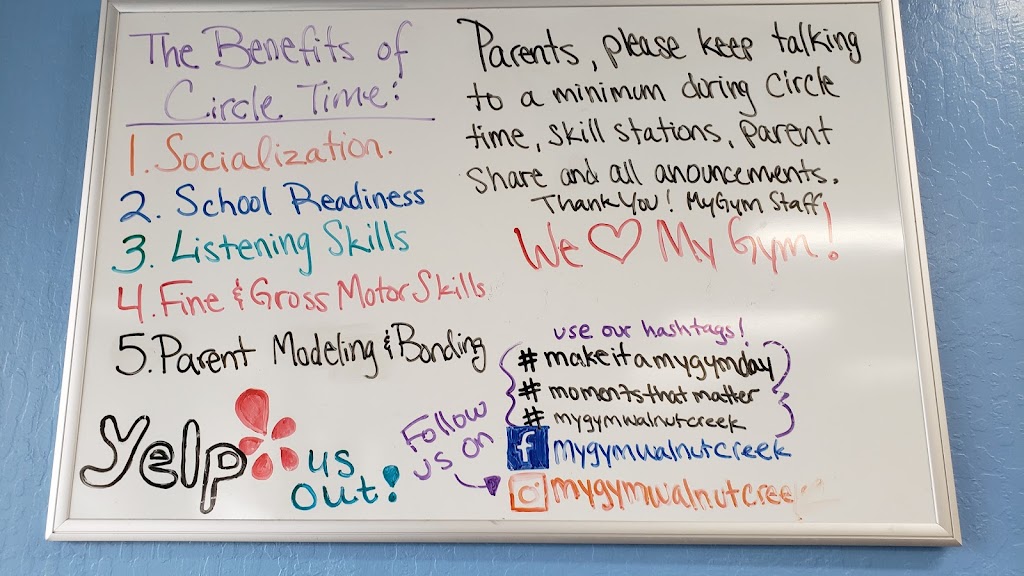 The Benefits of
Circle Time:
1. Socialization.
2. School Readiness
3. Listening Skills
4. Fine & Gross Motor Skills
5. Parent Modeling & Bonding
Yelp us
out!
Parents, please keep talking
to a minimum during Circle
time, skill stations, parent
share and all anouncements.
Thank you! MyGym Staff
We ♡ My Gym!
use our hashtags!
#makeitamygymday
#momentsthatmatter
#mygymwalnutcreek
Follow
us on
f mygymwalnutcreek
mygymwalnutcree